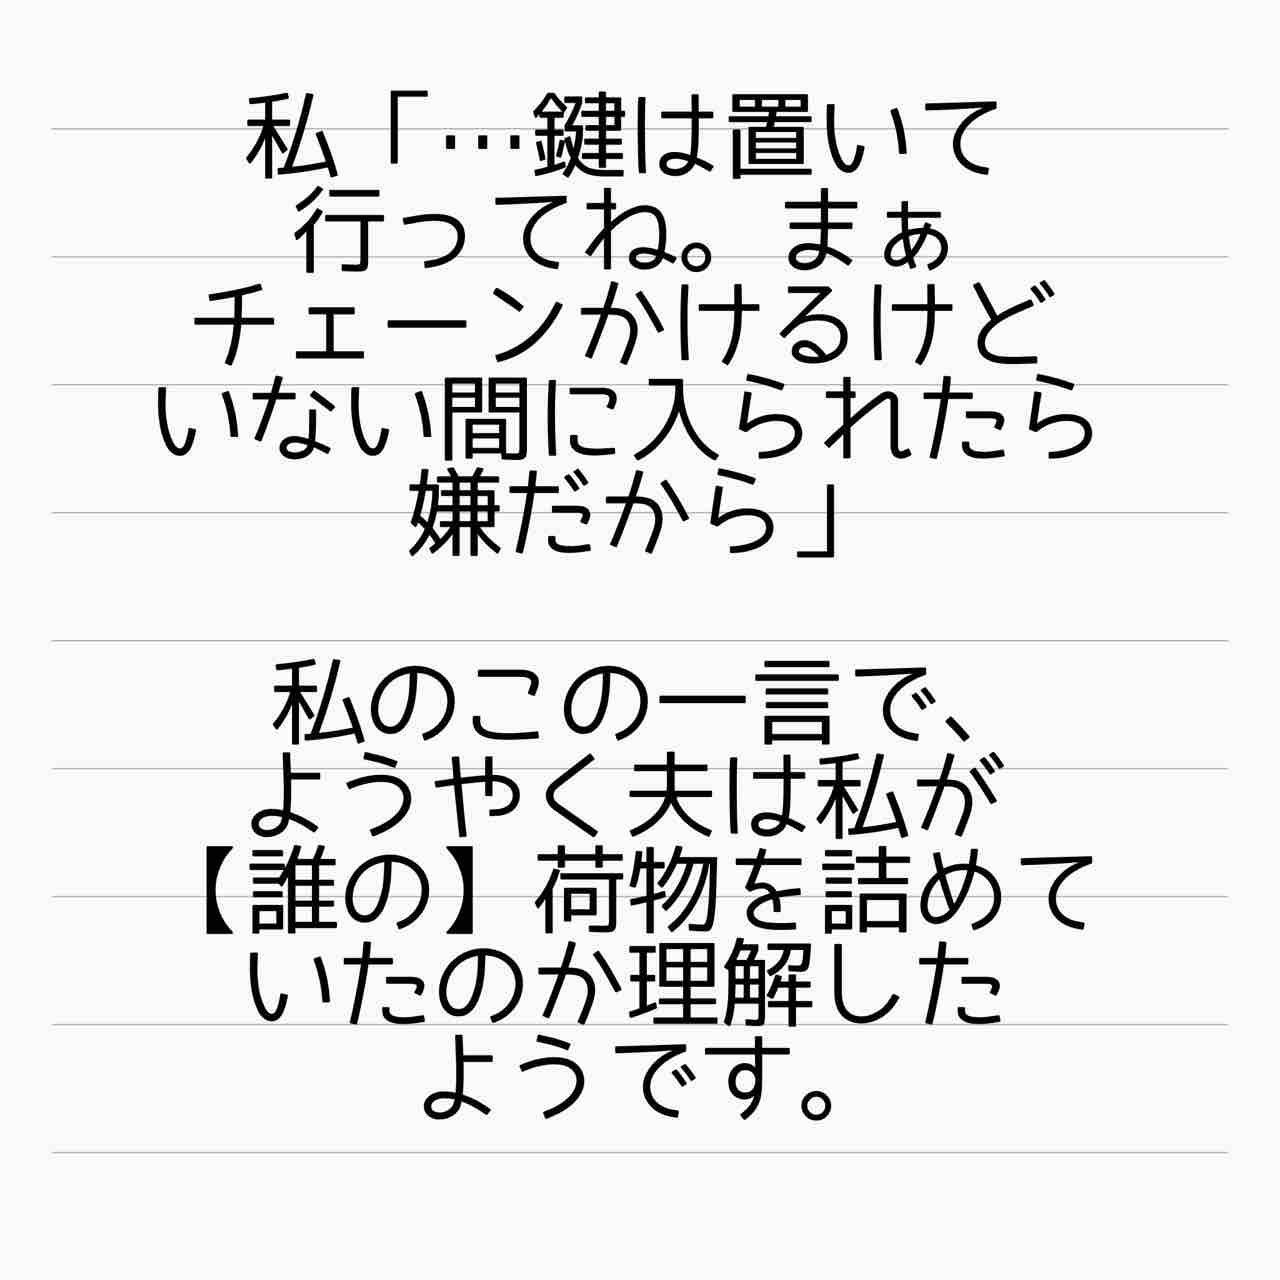 私「…鍵は置いて
行ってね。まぁ
チェーンかけるけど
いない間に入られたら
嫌だから」
私のこの一言で、
ようやく夫は私が
【誰の】荷物を詰めて
いたのか理解した
ようです。